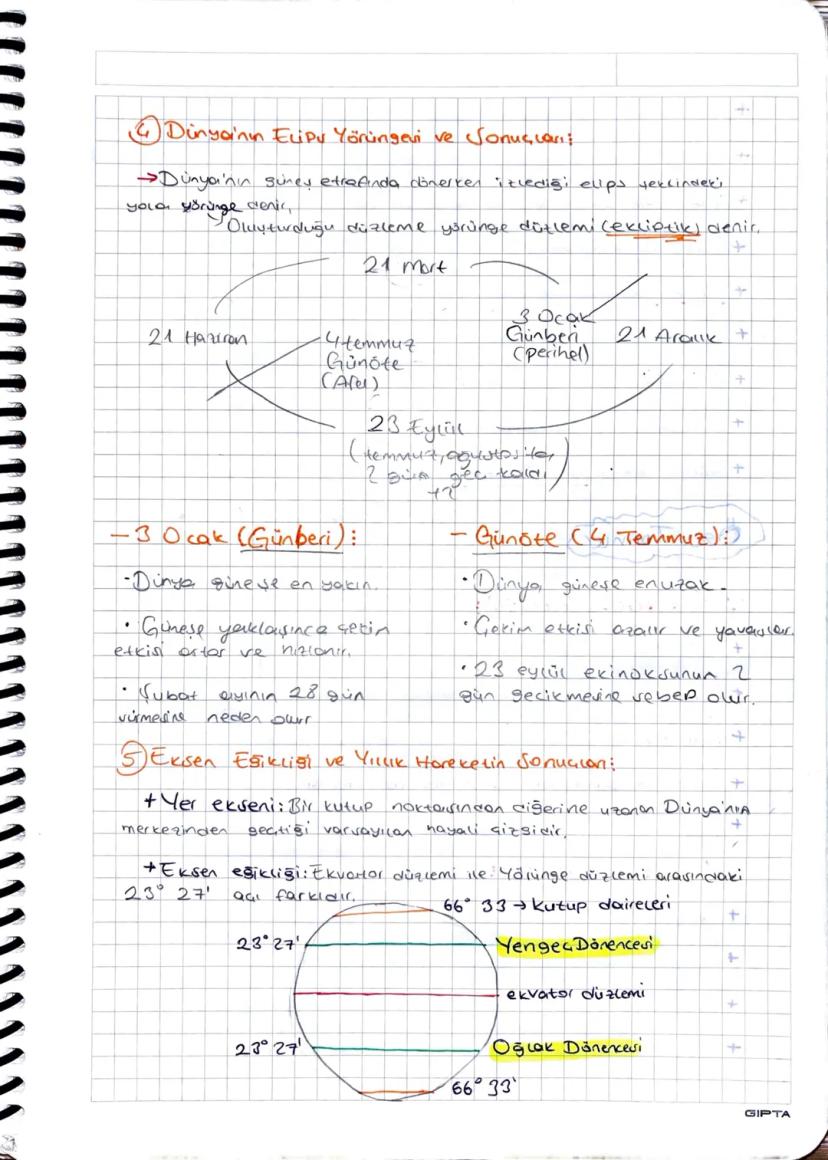 ④ Dünya'nın Elips Yörüngesi ve Sonuçları:
→ Dünya'nın güneş etrafında dönerken izlediği elips şeklindeki
yola yörünge denir.
Oluşturduğu düzleme yörünge düzlemi (ekliptik) denir.
21 Mart
21 Haziran
4 temmuz
Günöte
(Afel)
3 Ocak
Günberi
(perihel)
21 Aralık
23 Eylül
(temmuz, ağustos
2 gün geç kaldı)
+2
- 3 Ocak (Günberi):
· Dünya güneşe en yakın.
· Güneşe yaklaşınca çekim
etkisi artar ve hızlanır.
· Şubat ayının 28 gün
sürmesine neden olur
- Günöte (4 Temmuz):
· Dünya, güneşe en uzak.
· Çekim etkisi azalır ve yavaşlar.
· 23 eylül ekinoksunun 2
gün gecikmesine sebep olur.
⑤ Eksen Eğikliği ve Yıllık Hareketin Sonuçları:
+ Yer ekseni: Bir kutup noktasından diğerine uzanan Dünya'nın
merkezinden geçtiği varsayılan hayali çizgidir.
+ Eksen eğikliği: Ekvator düzlemi ile Yörünge düzlemi arasındaki
23° 27' açı farkıdır.
66° 33 → Kutup daireleri
23° 27' Yengeç Dönencesi
ekvator düzlemi
23° 27' Oğlak Dönencesi
66° 33'
GIPTA